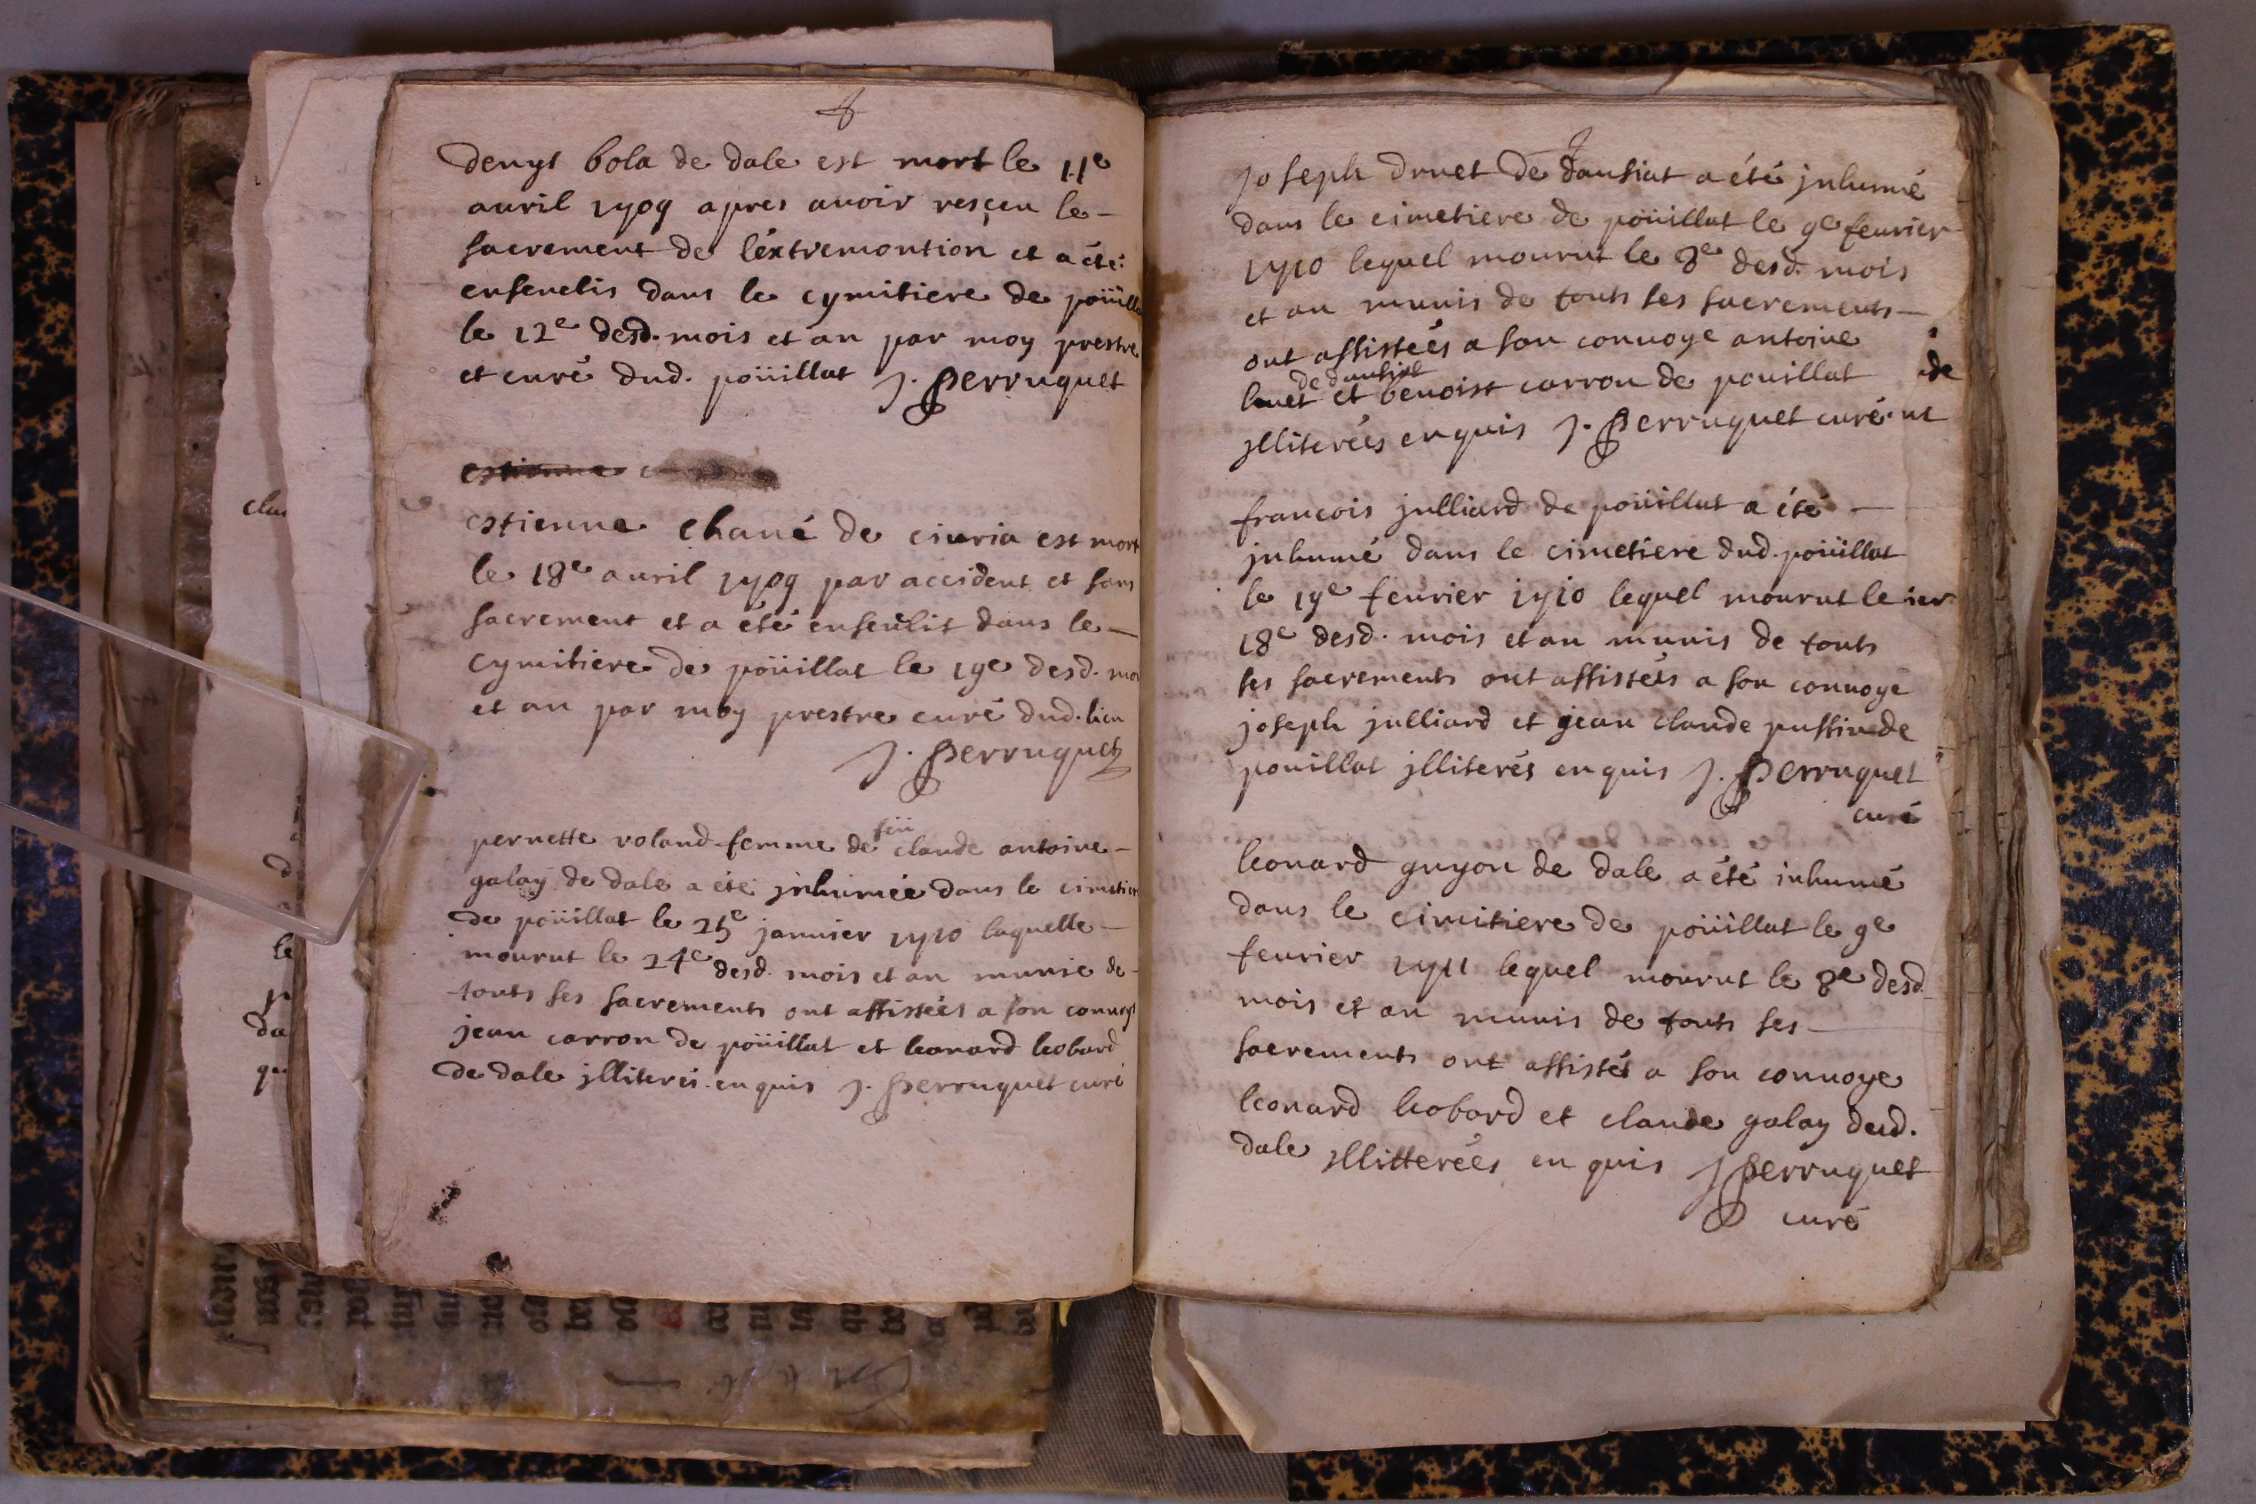 denyt bola de dale est mort le 11e
auril 1709 apres auoir resçeu le -
sacrement de léxtremontion et a été
enseuelis dans le cymitiere de poüill
le 12e desd. mois et an par moy prestre
et curé dud. poüillat J. Perruquet
estienne
estienne chané de ciuria est mort
le 18e auril 1709 par accident et sans
sacrement et a été enseulit dans le -
cymitiere de poüillat le 19e desd. mo
et an par moy prestre curé dud. lieu
J. Perruquet
pernette roland femme de feü claude antoine -
galay de dale a été jnhumée dans le cimetier
de poüillat le 25e januier 1710 laquelle -
mourut le 24e desd. mois et an munie de -
touts ses sacrements ont assistéés a son conuoye
jean carron de poüillat et leonard leobard
de dale jlliterés enquis J. Perruquet curé
joseph druet de dansiat a été jnhumé
dans le cimetiere de poüillat le 9e feurier
1710 lequel mourut le 8e desd. mois
et an munis de touts ses sacrements -
ont assistéés a son conuoye antoine
luet de dansiat et benoist carron de pouillat
jlliteréés enquis J. Perruquet curé
francois julliard de poüillat a été -
jnhumé dans le cimetiere dud. poüillat
le 19e feurier 1710 lequel mourut le
18e desd. mois et an munis de touts
ses sacrements ont assistéés a son conuoye
joseph julliard et jean claude pussin de
pouillat jlliterés enquis J. Perruquet
curé
leonard guyon de dale a été inhumé
dans le cimitiere de poüillat le 9e
feurier 1711 lequel mourut le 8e desd.
mois et an munis de touts ses -
sacrements ont assistés a son conuoye
leonard leobard et claude galay dud.
dale jllitteréés en quis J Perruquet
curé